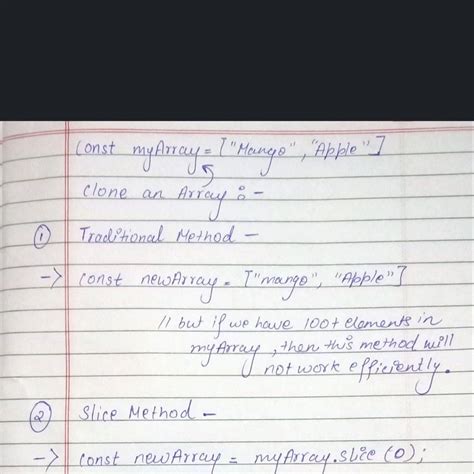 Const myArray = ["Mango", "Apple"]
Clone an Array :-
① Traditional Method -
-> const newArray = ["mango", "Apple"]
// but if we have 100+ elements in
myArray, then this method will
not work efficiently.
② Slice Method -
-> const newArray = myArray.slice (0);